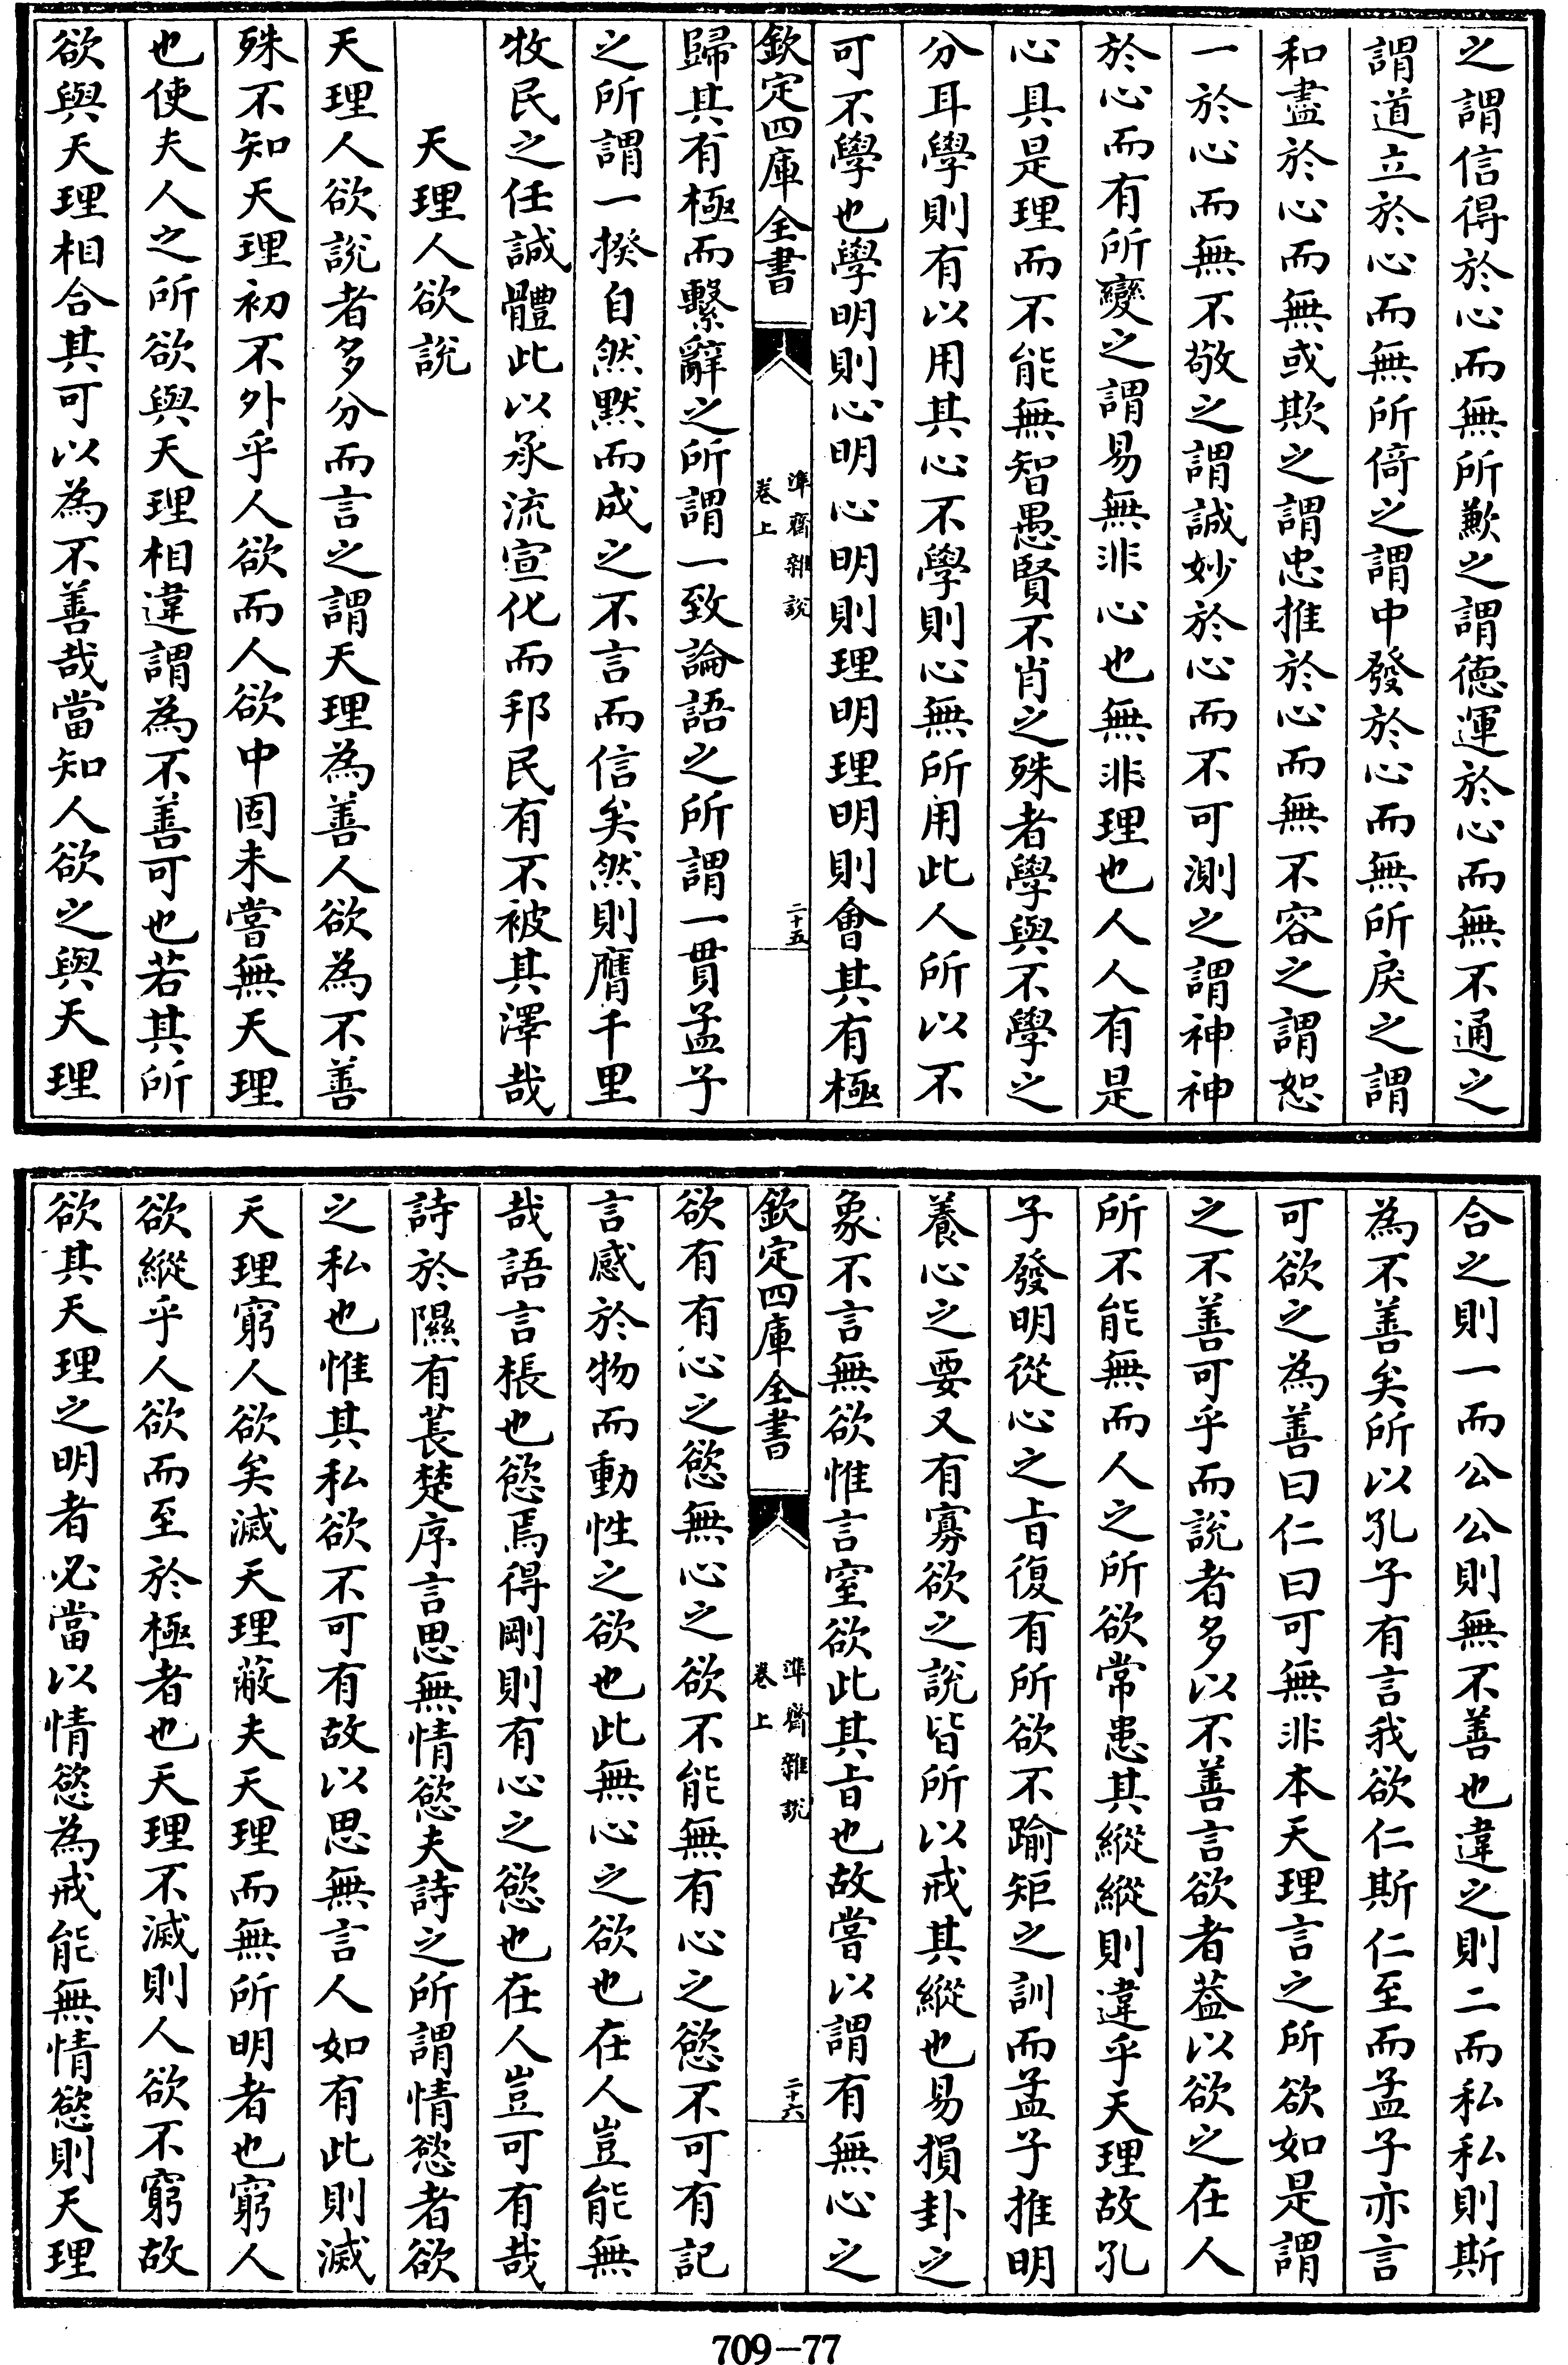 之謂信得於心而無所歉之謂德運於心而無不通之
謂道立於心而無所倚之謂中發於心而無所戾之謂
和盡於心而無或欺之謂忠推於心而無不容之謂恕
一於心而無不敬之謂誠妙於心而不可測之謂神神
於心而有所變之謂易無非心也無非理也人人有是
心具是理而不能無智愚賢不肖之殊者學與不學之
分耳學則有以用其心不學則心無所用此人所以不
可不學也學明則心明心明則理明理明則會其有極
欽定四庫全書
準齋雜說
卷上
二十五
歸其有極而繫辭之所謂一致論語之所謂一貫孟子
之所謂一揆自然黙而成之不言而信矣然則膺千里
牧民之任誠體此以承流宣化而邦民有不被其澤哉
天理人欲說
天理人欲說者多分而言之謂天理為善人欲為不善
殊不知天理初不外乎人欲而人欲中固未嘗無天理
也使夫人之所欲與天理相違謂為不善可也若其所
欲與天理相合其可以為不善哉當知人欲之與天理
合之則一而公公則無不善也違之則二而私私則斯
為不善矣所以孔子有言我欲仁斯仁至而孟子亦言
可欲之為善曰仁曰可無非本天理言之所欲如是謂
之不善可乎而說者多以不善言欲者葢以欲之在人
所不能無而人之所欲常患其縱縱則違乎天理故孔
子發明從心之㫖復有所欲不踰矩之訓而孟子推明
養心之要又有寡欲之說皆所以戒其縱也易損卦之
象不言無欲惟言窒欲此其㫖也故嘗以謂有無心之
欽定四庫全書
準齋雜說
卷上
二十六
欲有有心之慾無心之欲不能無有心之慾不可有記
言感於物而動性之欲也此無心之欲也在人豈能無
哉語言棖也慾焉得剛則有心之慾也在人豈可有哉
詩於隰有萇楚序言思無情慾夫詩之所謂情慾者欲
之私也惟其私欲不可有故以思無言人如有此則滅
天理窮人欲矣滅天理蔽夫天理而無所明者也窮人
欲縱乎人欲而至於極者也天理不滅則人欲不窮故
欲其天理之明者必當以情慾為戒能無情慾則天理
709-77